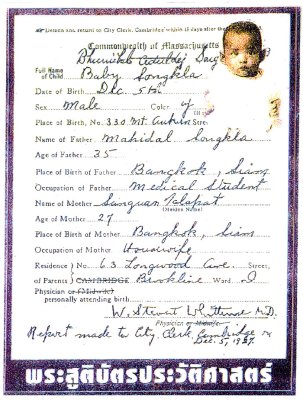 and return to City Clerk, Cambridge within 15 days after
Commonwealth of Massachusetts
Bhumibol Aduldej
Full Name of Child Baby Songkla
Date of Birth Dec. 5th
Sex Male Color
Place of Birth, No. 330 Mt. Auburn Street
Name of Father Mahidol Songkla
Age of Father 35
Place of Birth of Father Bangkok, Siam
Occupation of Father Medical Student
Name of Mother Sangwan
(Maiden Name)
Age of Mother 27
Place of Birth of Mother Bangkok, Siam
Occupation of Mother Housewife
Residence No. 63 Longwood Ave. Street,
of Parents CAMBRIDGE Brookline Ward
Physician or (Midwife)
personally attending birth
W. Stewart Whittemore M.D.
Physician or Midwife
Report made to City Clerk, Cambridge
Dec. 5, 1927.
พระสูติบัตรประวัติศาสตร์